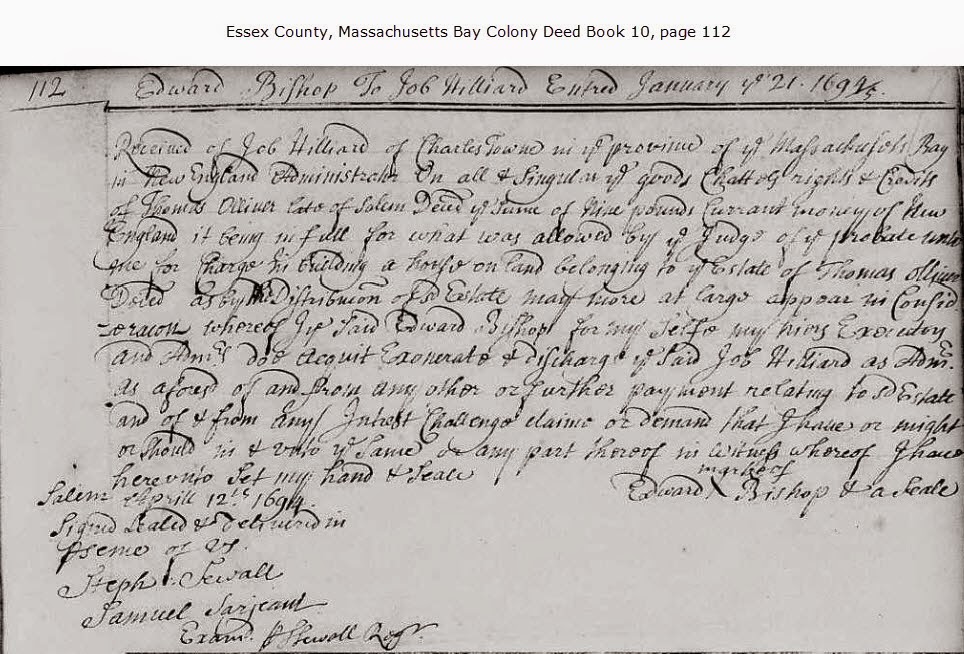 Essex County, Massachusetts Bay Colony Deed Book 10, page 112
112 Edward Bishop To Job Hilliard Entred January ye 21. 1694/5.
Received of Job Hilliard of Charles Towne in ye province of ye Massachusets Bay
in New England Administrator On all & Singular ye goods Chattels rights & Credits
of Thomas Olliver late of Salem Deced ye Sume of Nine pounds Currant money of New
England it being in full for what was allowed by ye Judge of ye probate unto
me for Charge in building a house on land belonging to ye Estate of Thomas Olliver
Deced as by the Distribucon of sd Estate may more at large appear in Consid
eracon whereof I ye Said Edward Bishop for my Selfe my hiers Executors
and Admrs doe Acquit Exonerate & discharge ye Said Job Hilliard as Admr.
as aforesd of and from any other or further payment relating to sd Estate
and of & from any Intrest Challenge claime or demand that I have or might
or Should in & unto ye Same or any part thereof in Witness whereof I have
hereunto Set my hand & Seale
marke of
Edward X Bishop & a Seale
Salem Aprill 12th 1694.
Signed Sealed & Delivered in
psence of Us.
Steph: Sewall
Samuel Sarjeant
Examd. p SSewall Regr.